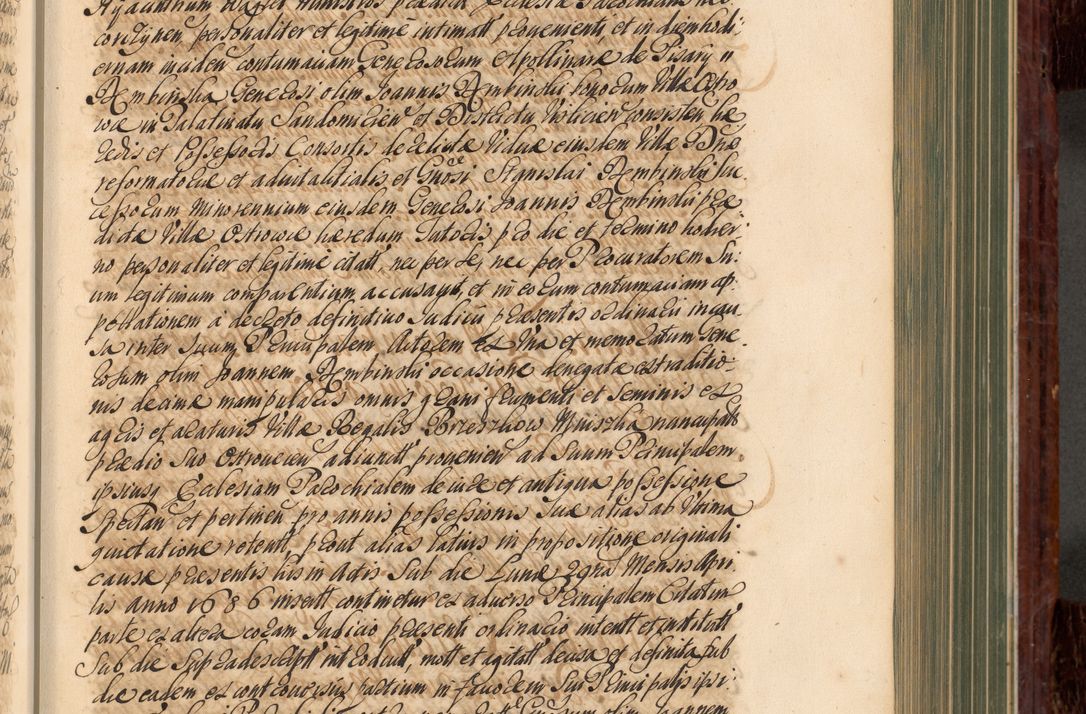 corczynen personaliter et legitime intimatt provenienti et in diem hodi-
ernam incidens contumaciam Generosorum Apollinarae de Pisary
Rembinska Generosi olim Joannis Rembinskii bonorum Villae Ostro
wce in Palatinatu Sandomirien et Districtu Visliciens consisten hae
redis et Possessoris Consortis derelictae Viduae eiusdem Villae Dnae
reformatoriae et advitalitialis et Gnosi Stanislai Rembinskii suc
cessorum Minorennium eiusdem Generosi Joannis Rembinskii prae
dictae Villae Ostrowce haeredum Patoris pro die et termino hodier-
no personaliter et legitime citatt, nec per se, nec per Procuratorem Su-
um legitimum comparentium accusavit, et in eorum contumaciam ap-
pellationem a decreto definitivo Judicii praesentis ordinarii in cau
sa inter Suum Principalem Actorem ex Una et memoratum Gene-
rosum olim Joannem Rembinskii occasione denegatae extraditio-
nis decimae manipularis omnis grani frumenti et seminis ex
agris et araturis Villae Regalis Brzeszkow Miniszka nuncupatt
praedio suo Ostrovcien adiunctt provenien ad Suum Principalem
ipsiusq Ecclesiam Parochialem de iure et antiqua possessione
spectan et pertinen pro annis possessionis suae alias ab Ultima
quietatione retentt, prout alias latius in propositione originali
causae praesentis his in Actis Sub die Lunae 29na Mensis Apri
lis Anno 1686 insertt continetur ex adverso Principalem Citatum
parte ex altera coram Judicio praesenti ordinario intentt et institutt
Sub die Supradescriptt introductt, mott et agitatt decisa et definita sub
die eadem ex controversiis partium in favorem Sui Principalis ipsi-